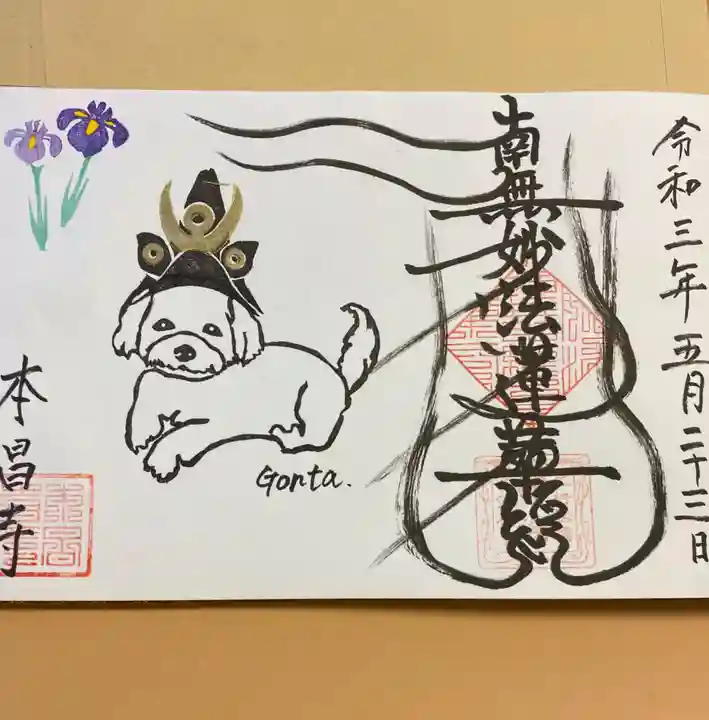 令和三年五月二十三日
南無妙法蓮華經
Gonta.
本昌寺